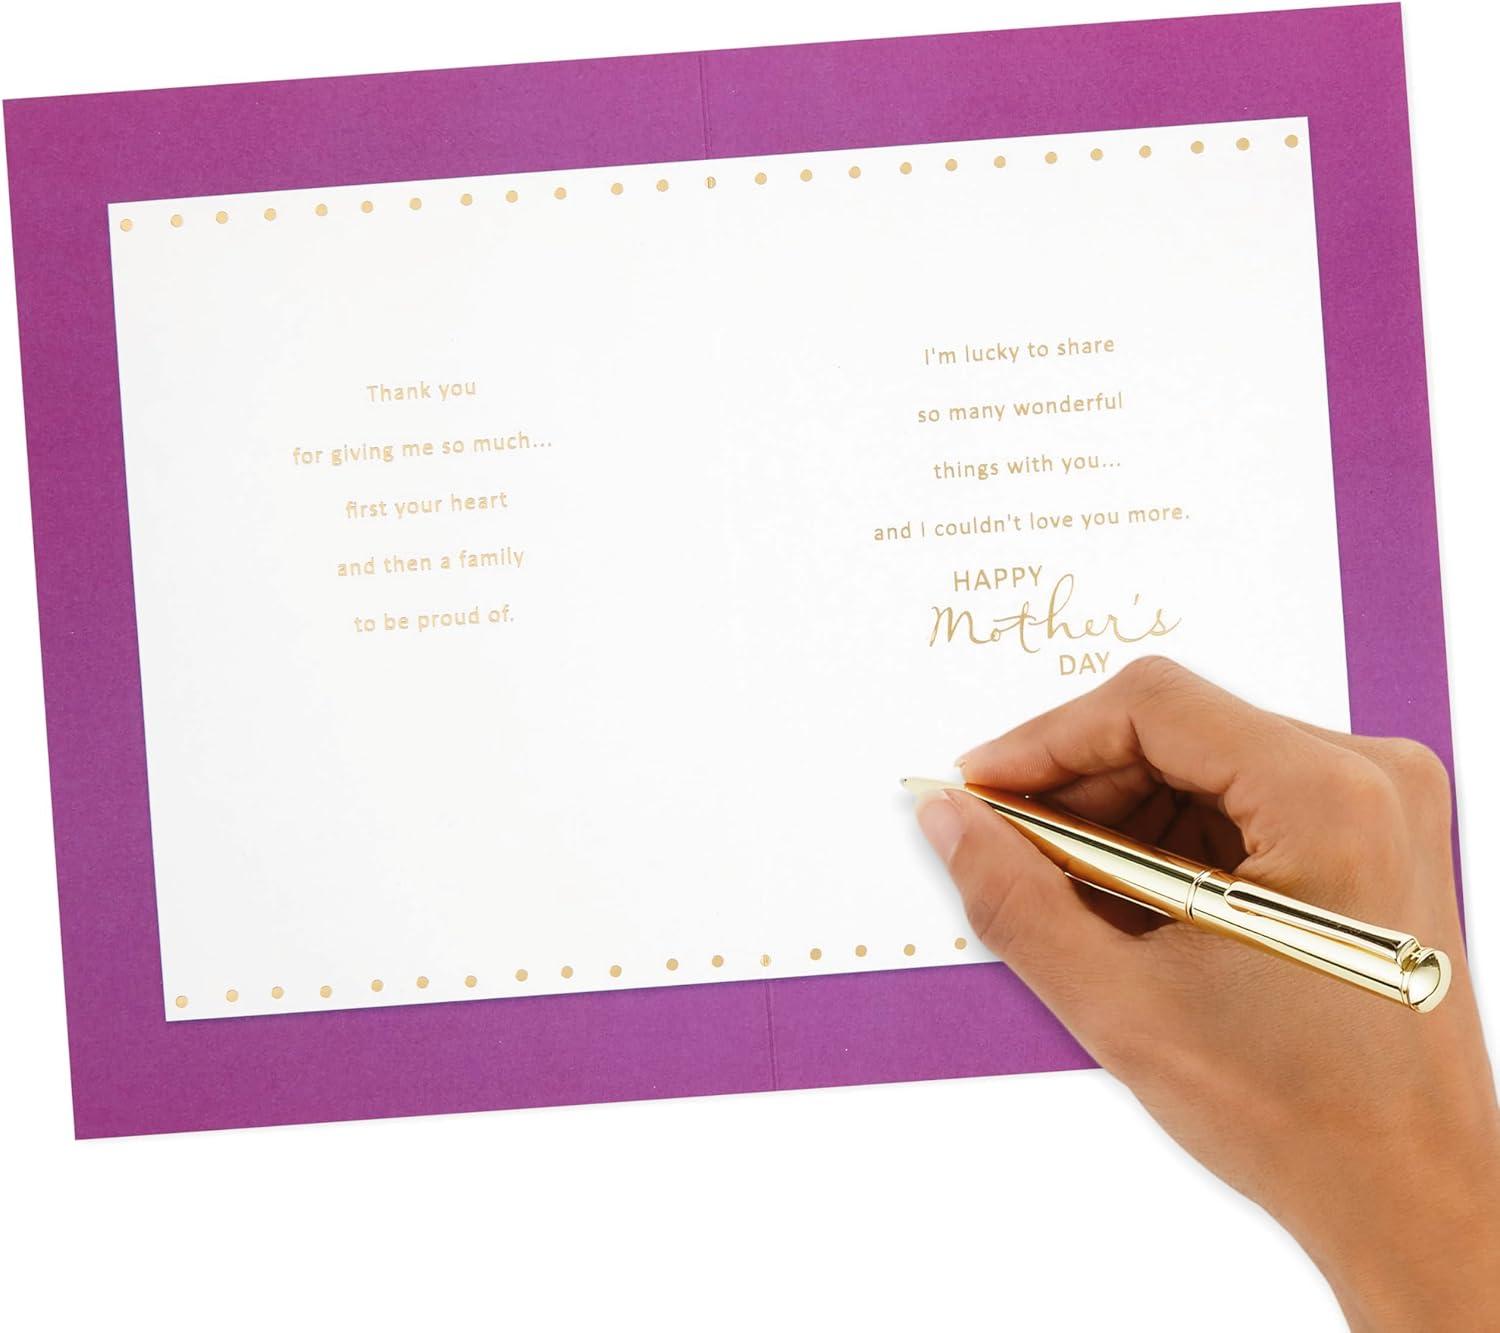 Thank you
for giving me so much...
first your heart
and then a family
to be proud of.
I'm lucky to share
so many wonderful
things with you...
and I couldn't love you more.
HAPPY
Mother's
DAY